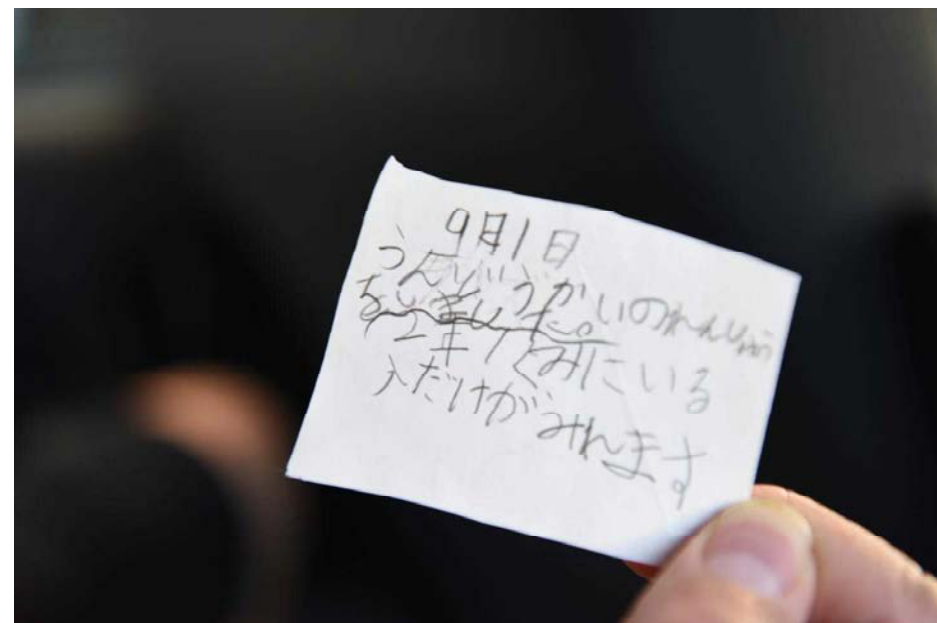 9月1日
うんどうかいのれんしゅう
をしました。
2年1くみにいる
人だけがみれます